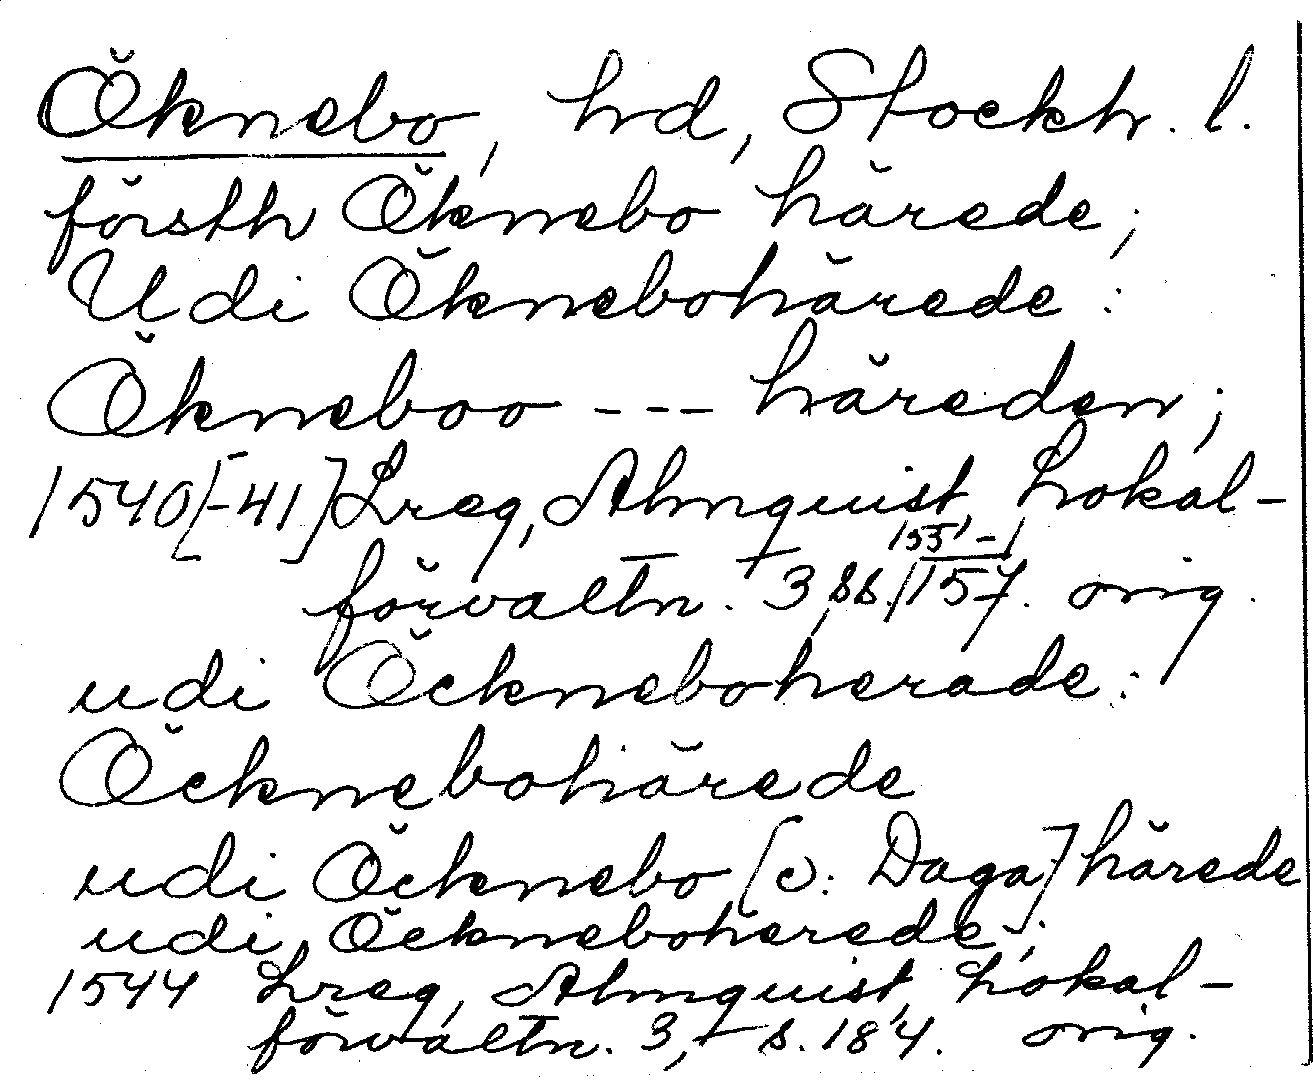 Öknebo, hd, Stockh. l.
försth Öknebo härede;
Udi Öknebohärede:
Ökneboo --- häreden;
1540[-41] Lreg, Almquist, Lokal-
förvaltn. 3, ss. 155, - 157. orig.
udi Öckneboherade:
Öcknebohärede
udi Öcknebo [o: Daga] härede
udi, Öckneboherede;
1544 Lreg, Almquist, Lokal-
förvaltn. 3, s. 184. orig.